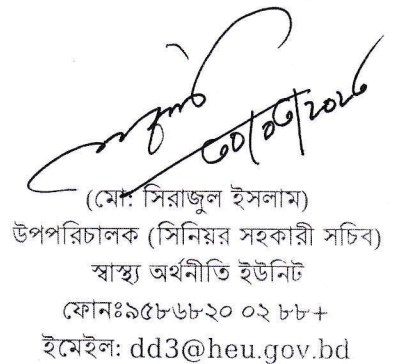 ৩০/০৩/২০২৬
(মো: সিরাজুল ইসলাম)
উপপরিচালক (সিনিয়র সহকারী সচিব)
স্বাস্থ্য অর্থনীতি ইউনিট
ফোনঃ৯৫৮৬৮২০ ০২ ৮৮+
ইমেইল: dd3@heu.gov.bd